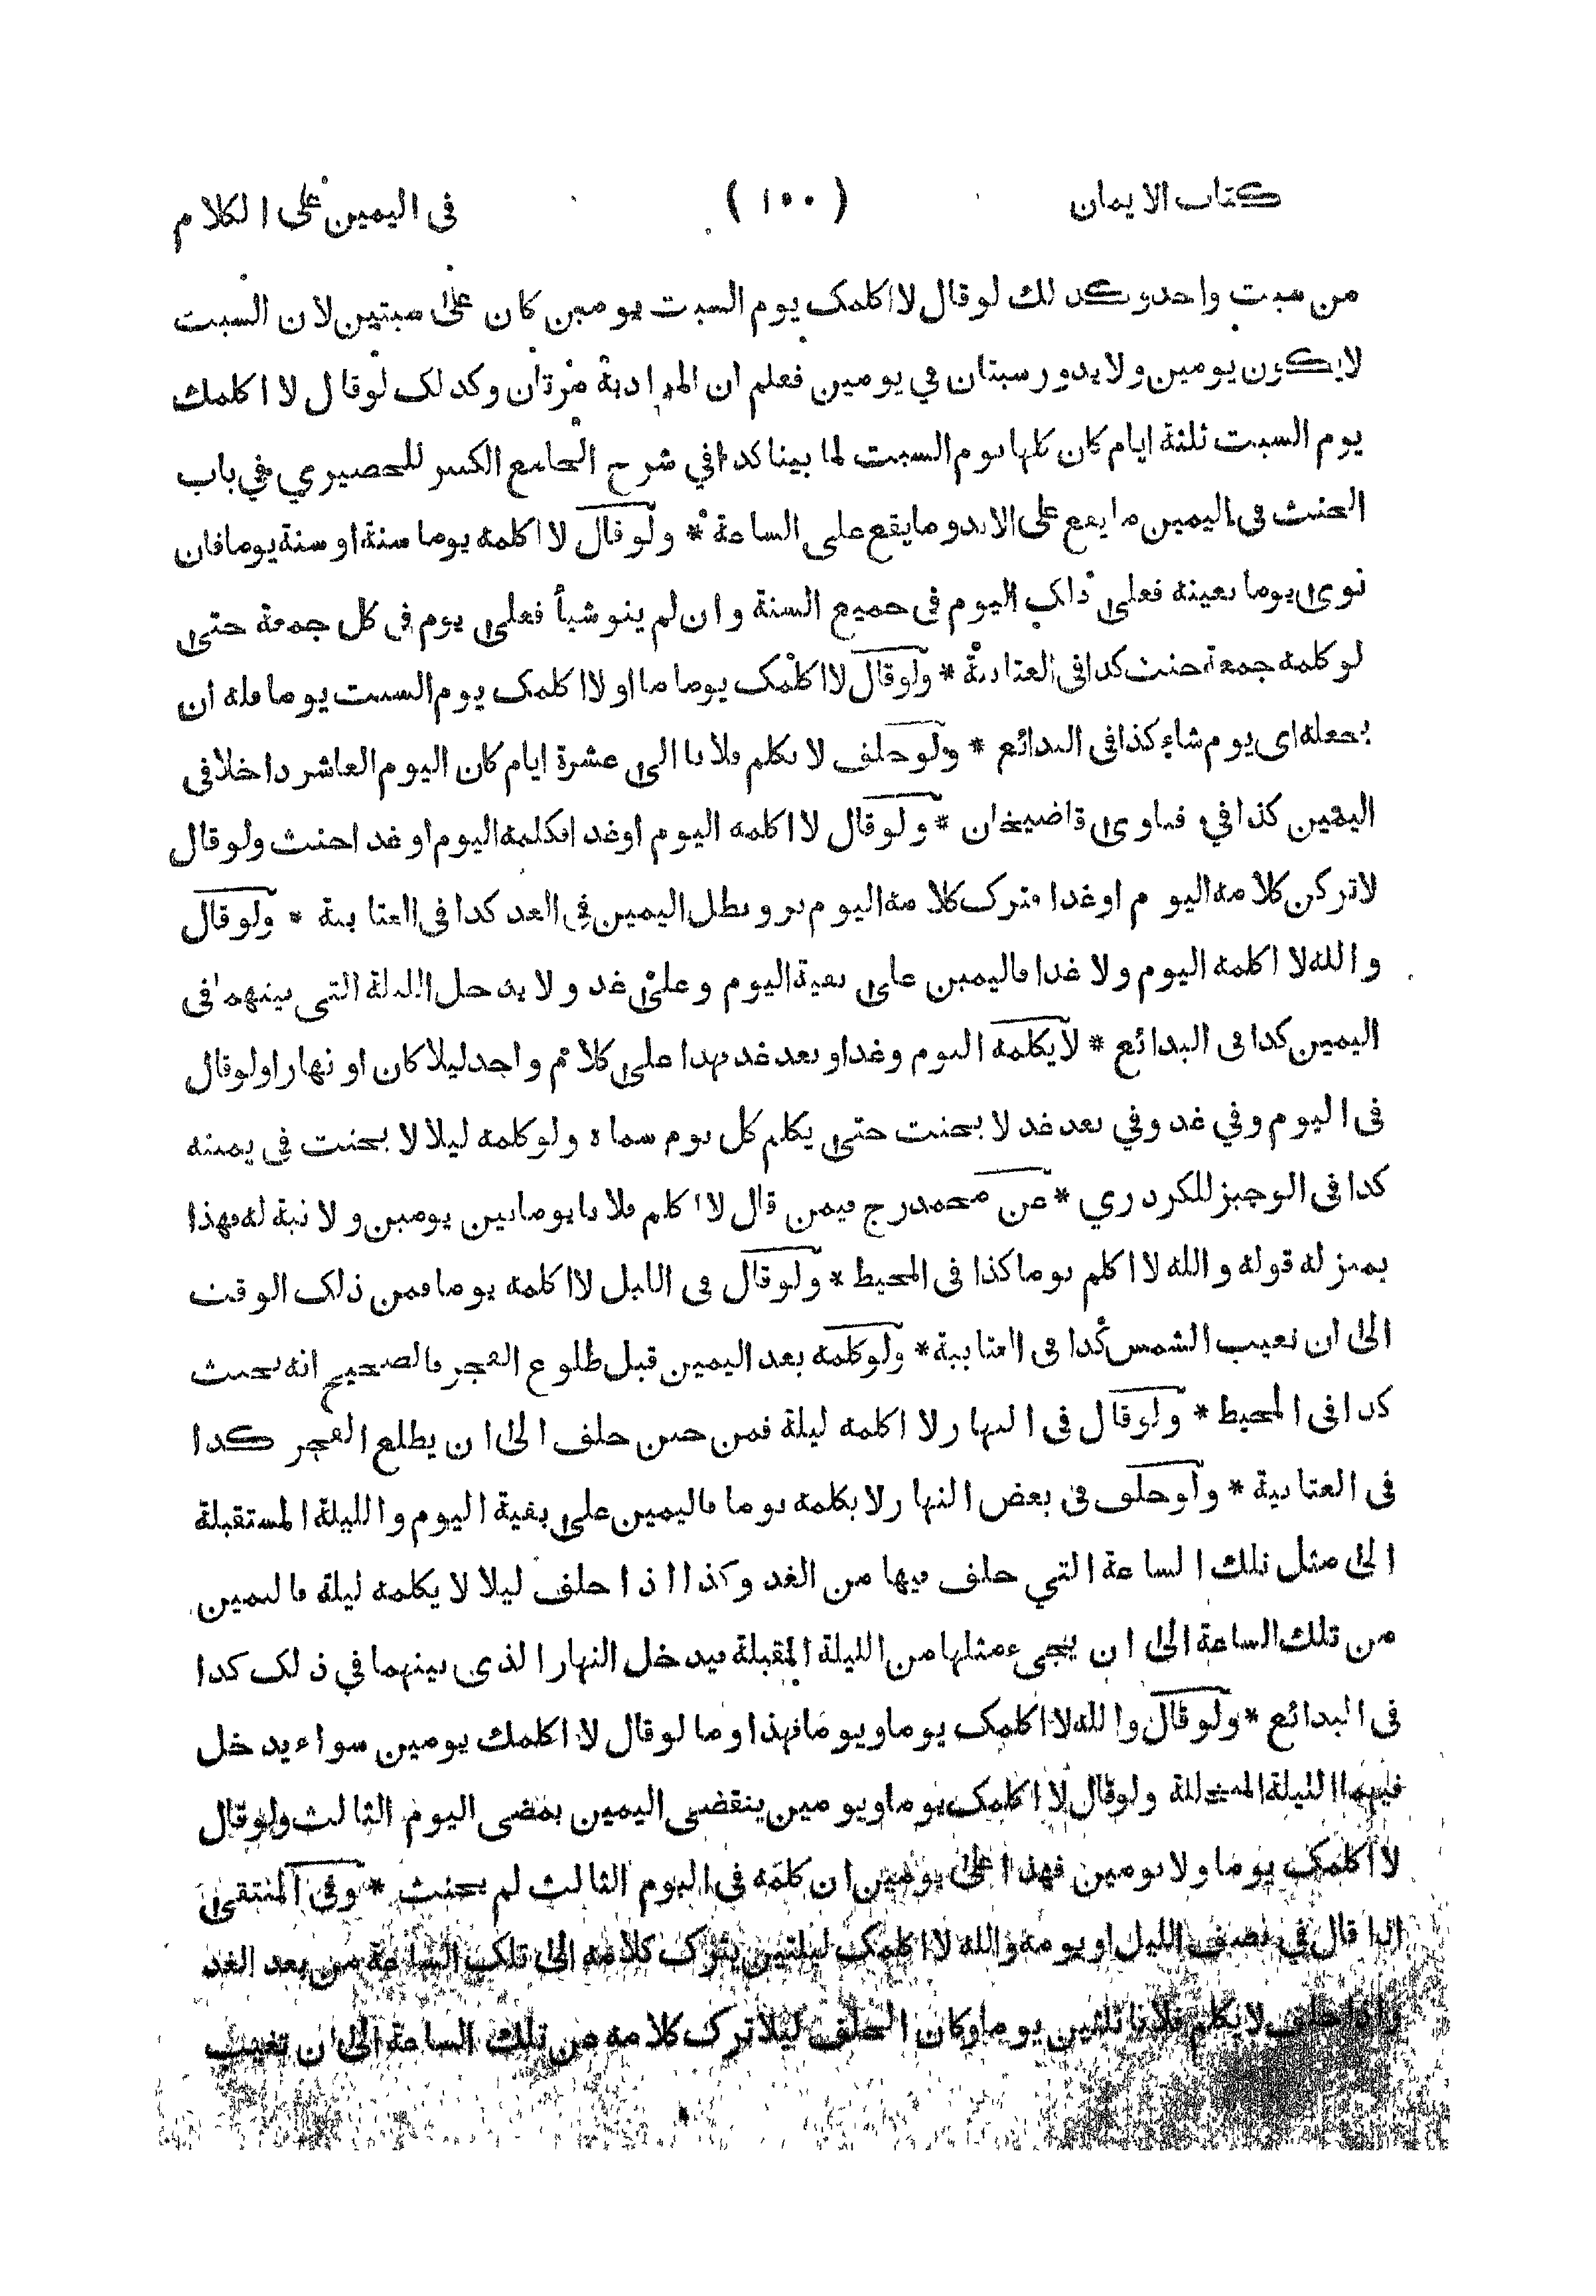 كتاب الايمان (١٠٠) فى اليمين على الكلام
من سبت واحد وكذلك لو قال لا اكلمك يوم السبت يومين كان على سبتين لان السبت
لا يكون يومين ولا يدور سبتان في يومين فعلم ان المراد به مرتان وكذلك لو قال لا اكلمك
يوم السبت ثلثة ايام كان كلها يوم السبت لما بينا كذا في شرح الجامع الكبير للحصيري في باب
الحنث فى اليمين ما يقع على الابد وما يقع على الساعة * ولو قال لا اكلمه يوما سنة او سنة يوما فان
نوى يوما بعينه فعلى ذلك اليوم فى جميع السنة وان لم ينو شيأ فعلى يوم في كل جمعة حتى
لو كلمه جمعة حنث كذا فى العتابية * ولو قال لا اكلمك يوما ما او لا اكلمك يوم السبت يوما فله ان
يجعله اى يوم شاء كذا فى البدائع * ولو حلف لا يكلم فلانا الى عشرة ايام كان اليوم العاشر داخلا فى
اليمين كذا في فتاوى قاضيخان * ولو قال لا اكلمه اليوم او غدا فكلمه اليوم او غدا حنث ولو قال
لاتركن كلامه اليوم او غدا فترك كلامه اليوم بر وبطل اليمين في الغد كذا فى العتابية * ولو قال
والله لا اكلمه اليوم ولا غدا فاليمين على بقية اليوم وعلى غد ولا يدخل الليلة التى بينهما فى
اليمين كذا فى البدائع * لا يكلمه اليوم وغدا وبعد غد فهذا على كلام واحد ليلا كان او نهارا ولو قال
فى اليوم وفي غد وفي بعد غد لا يحنث حتى يكلم كل يوم سماه ولو كلمه ليلا لا يحنث في يمينه
كذا فى الوجيز للكردري * عن محمد رح فيمن قال لا اكلم فلانا يوما بين يومين ولا نية له فهذا
بمنزلة قوله والله لا اكلم يوما كذا فى المحيط * ولو قال فى الليل لا اكلمه يوما فمن ذلك الوقت
الى ان تغيب الشمس كذا فى العتابية * ولو كلمه بعد اليمين قبل طلوع الفجر فالصحيح انه يحنث
كذا فى المحيط * ولو قال فى النهار لا اكلمه ليلة فمن حين حلف الى ان يطلع الفجر كذا
فى العتابية * ولو حلف فى بعض النهار لا يكلمه يوما فاليمين على بقية اليوم والليلة المستقبلة
الى مثل تلك الساعة التي حلف فيها من الغد وكذا اذا حلف ليلا لا يكلمه ليلة فاليمين
من تلك الساعة الى ان يجيء مثلها من الليلة المقبلة فيدخل النهار الذى بينهما في ذلك كذا
فى البدائع * ولو قال والله لا اكلمك يوما ويوما فهذا وما لو قال لا اكلمك يومين سواء يدخل
فيهما الليلة المتخللة ولو قال لا اكلمك يوما ويومين ينقضى اليمين بمضى اليوم الثالث ولو قال
لا اكلمك يوما ولا يومين فهذا على يومين ان كلمه فى اليوم الثالث لم يحنث * وفى المنتقى
اذا قال في نصف الليل او يومه والله لا اكلمك ليلتين يترك كلامه الى تلك الساعة من بعد الغد
واذا حلف لا يكلم فلانا ثلثين يوما وكان الحلف ليلا ترك كلامه من تلك الساعة الى ان تغيب